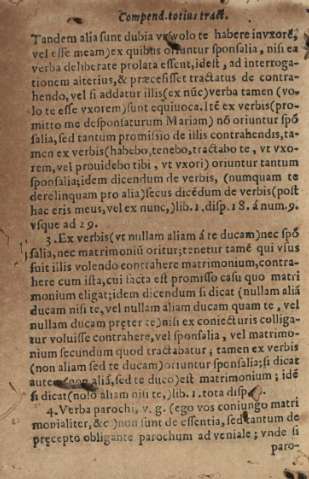 Compend. totius tract.
Tandem alia sunt dubia vt volo te habere invxorẽ,
vel esse meam) ex quibus oriuntur sponsalia, nisi ea
verba deliberate prolata essent, idest, ad interroga-
tionem alterius, & præcesisset tractatus de contra-
hendo, vel si addatur illis (ex nũc) verba tamen (vo-
lo te esse vxorem) sunt equiuoca. Itẽ ex verbis (pro-
mitto me desponsaturum Mariam) nõ oriũtur spõ
salia, sed tantum promisio de illis contrahendis, ta-
men ex verbis (habebo, tenebo, tractabo te, vt vxo-
rem, vel prouidebo tibi, vt vxori) oriuntur tantum
sponsalia; idem dicendum de verbis, (numquam te
derelinquam pro alia) secus dicẽdum de verbis (post
hac eris meus, vel ex nunc,) lib. 1. disp. 18. á num. 9.
vsque ad 29.
3. Ex verbis (vt nullam aliam á te ducam) nec spõ
salia, nec matrimoniũ oritur; tenetur tamẽ qui vsus
fuit illis volendo contrahere matrimonium, contra-
here cum ista, cui facta est promisso casu quo matri
monium eligat; idem dicendum si dicat (nullam aliã
ducam nisi te, vel nullam aliam ducam quam te, vel
nullam ducam pręter te) nisi ex coniecturis colliga-
tur voluisse contrahere, vel sponsalia, vel matrimo-
nium secundum quod tractabatur; tamen ex verbis
(non aliam sed te ducam) oriuntur sponsalia; si dicat
autem (non aliã, sed te duco) est matrimonium; idẽ
si dicat (nolo aliam nisi te,) lib. 1. tota disp.
4. Verba parochi, v. g. (ego vos coniungo matri
monialiter, &c) non sunt de essentia, sed tantum de
pręcepto obligante parochum ad veniale; vnde si
paro-